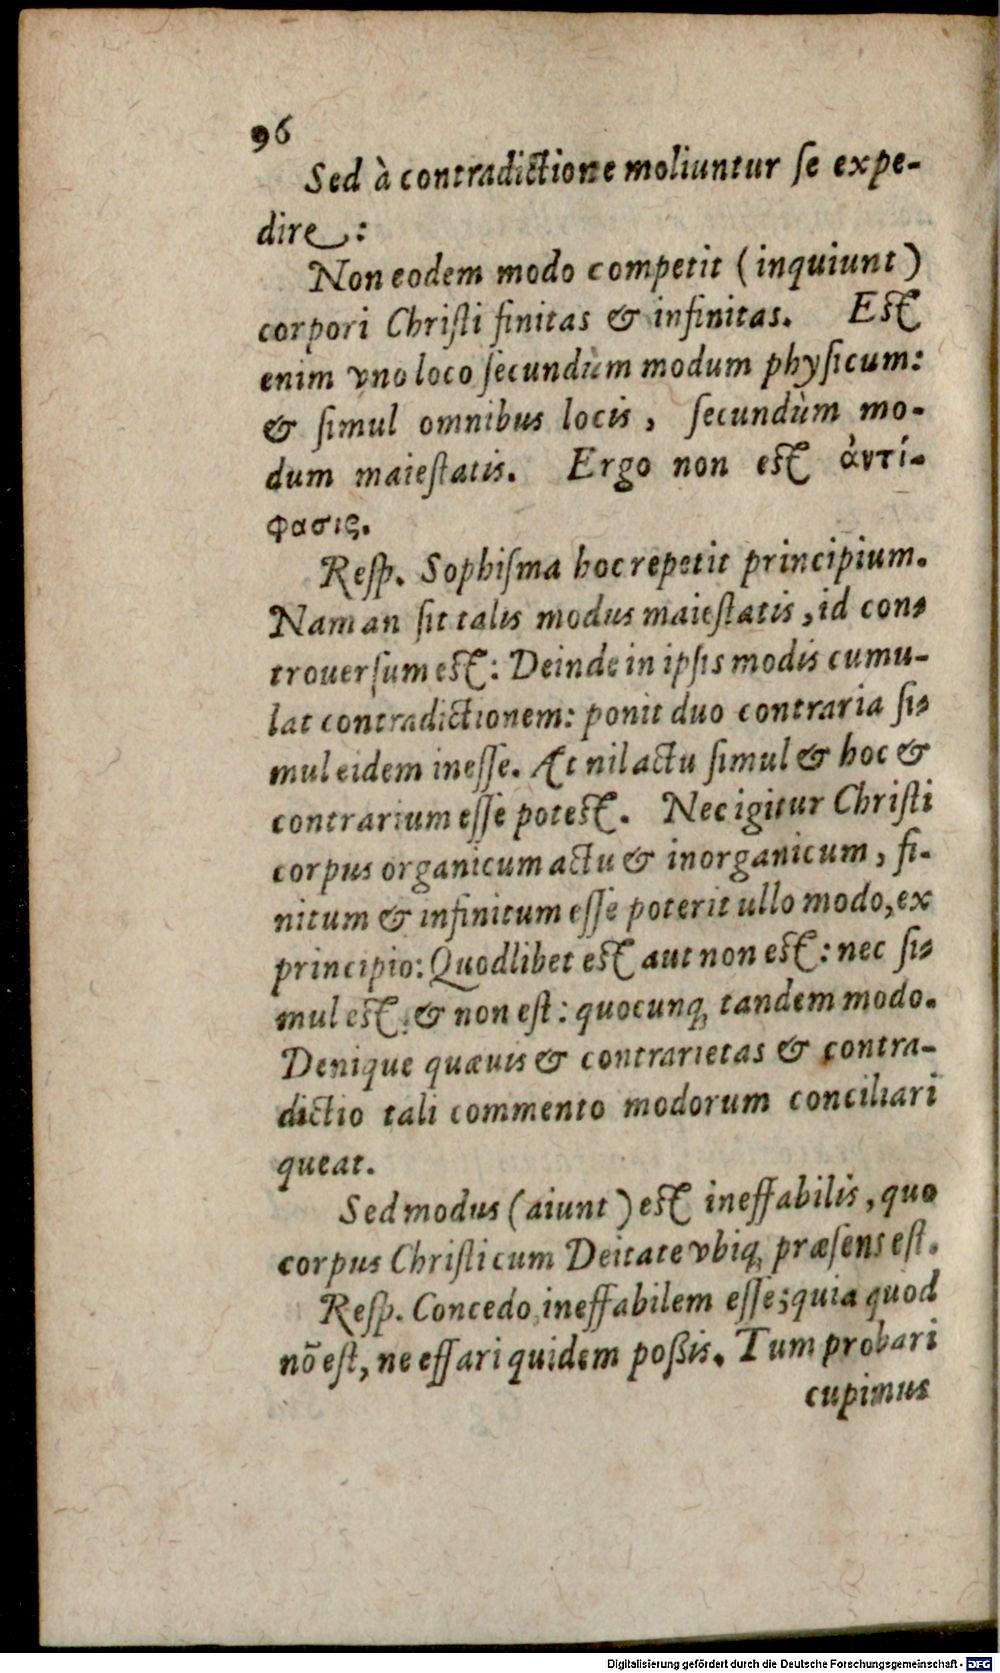 96
Sed à contradictione moliuntur ſe expe-
dire:
Non eodem modo competit (inquiunt)
corpori Chriſti finitas & infinitas. Eſt
enim vno loco ſecundùm modum phyſicum:
& ſimul omnibus locis, ſecundùm mo-
dum maieſtatis. Ergo non eſt ἀντί-
φασις.
Reſp. Sophiſma hoc repetit principium.
Nam an ſit talis modus maieſtatis, id con-
trouerſum eſt: Deinde in ipſis modis cumu-
lat contradictionem: ponit duo contraria ſi-
mul eidem ineſſe. At nil actu ſimul & hoc &
contrarium eſſe poteſt. Nec igitur Chriſti
corpus organicum actu & inorganicum, fi-
nitum & infinitum eſſe poterit ullo modo, ex
principio: Quodlibet eſt aut non eſt: nec ſi-
mul eſt & non eſt: quocunq; tandem modo.
Denique quæuis & contrarietas & contra-
dictio tali commento modorum conciliari
queat.
Sed modus (aiunt) eſt ineffabilis, quo
corpus Chriſti cum Deitate vbiq; præſens eſt.
Reſp. Concedo ineffabilem eſſe; quia quod
nō eſt, ne effari quidem poßis. Tum probari
cupimus
Digitalisierung gefördert durch die Deutsche Forschungsgemeinschaft - DFG